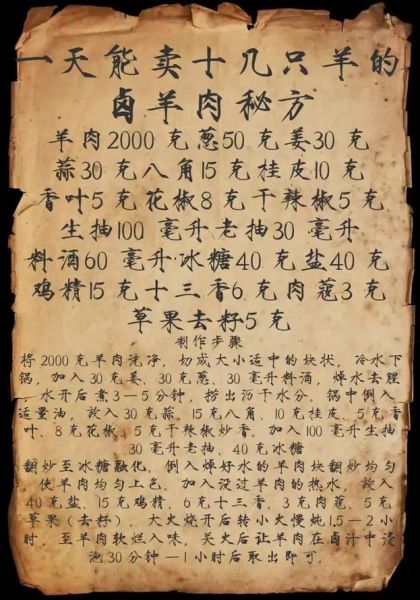 一天能卖十几只羊的
卤羊肉秘方
羊肉2000克葱50克姜30克
蒜30克八角15克桂皮10克
香叶5克花椒8克干辣椒5克
生抽100毫升老抽30毫升
料酒60毫升·冰糖40克盐40克
鸡精15克十三香6克肉蔻3克
草果去籽5克
制作步骤
将2000克羊肉洗净，切成大小适中的块状，冷水下
锅，加入30克姜、30克葱、30毫升料酒，焯水去腥
水开后煮3—5分钟，捞出沥干水分。锅中倒入
适量油，放入30克蒜、15克八角、10克桂皮、5克香
叶、8克花椒、5克干辣椒炒香。加入100毫升生抽
30毫升老抽、40克冰糖
翻炒至冰糖融化。倒入焯好水的羊肉块翻炒均匀
，使羊肉均匀上色。加入没过羊肉的热水，放入
40克盐、15克鸡精、6克十三香、3克肉蔻、5克
草果（去籽）。大火烧开后转小火慢炖1.5—2小
时，至羊肉软烂入味。关火后让羊肉在卤汁中浸
泡30分钟—1小时后取出即可。